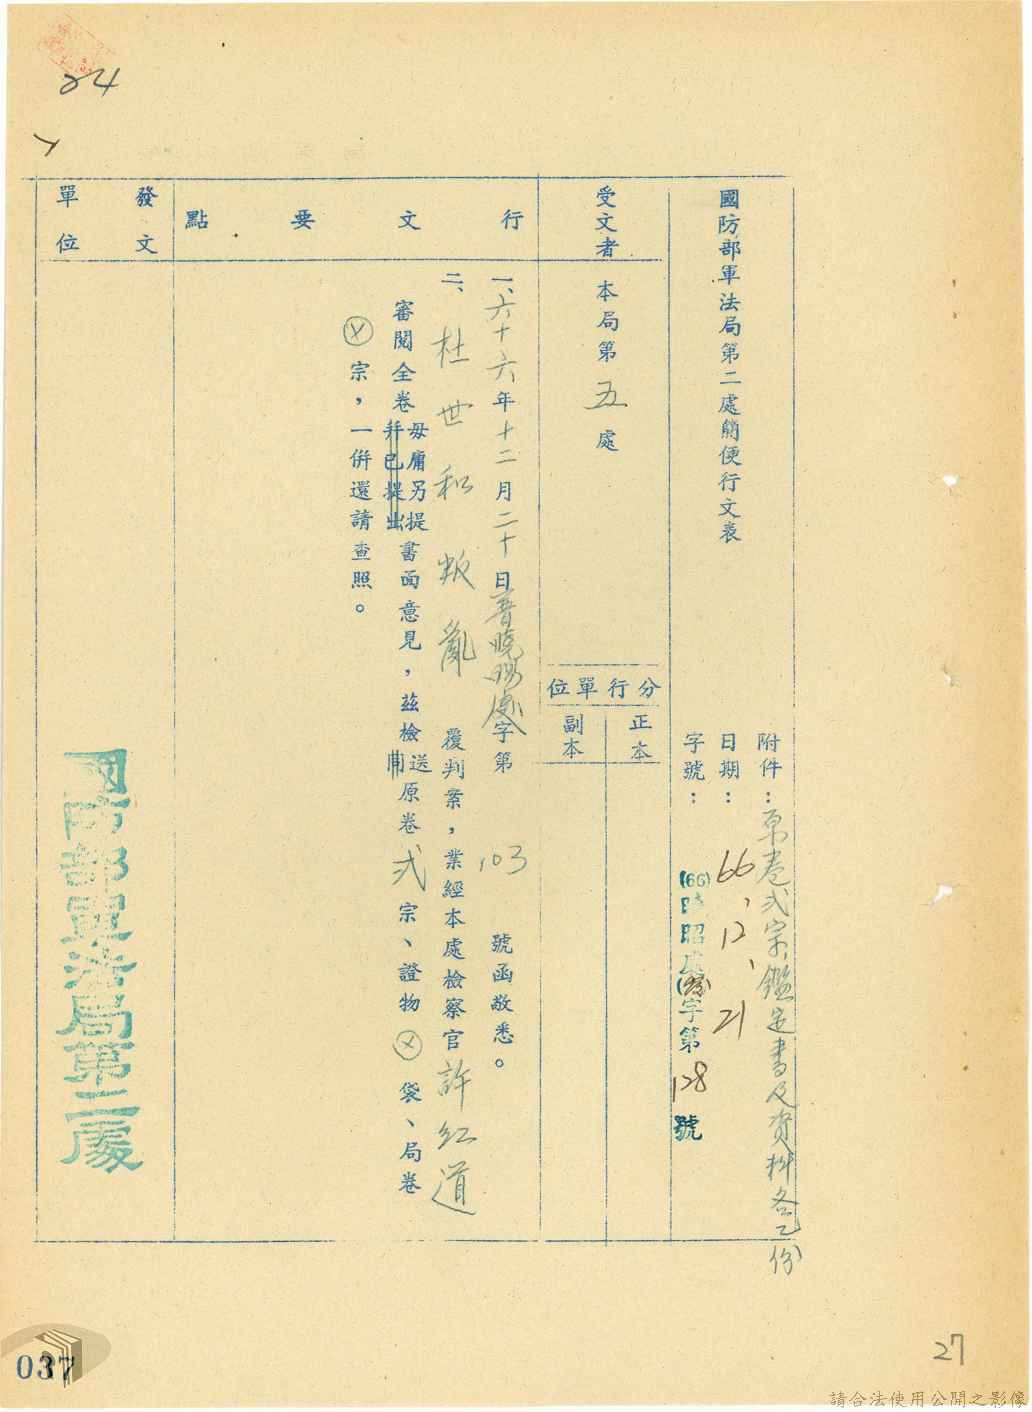 24
國防部軍法局第二處簡便行文表
附件：原卷弍宗、鑑定書及資料各乙份
日期：66、12、21
字號：(66)昭處字第128號
受文者 本局第五處
分行單位
正本
副本
行文要點
一、六十六年十二月二十日普曉字第103號函敬悉。
二、杜世和叛亂覆判案，業經本處檢察官許紅道
審閱全卷毋庸另提并已提出書面意見，茲檢送原卷弍宗、證物ㄨ袋、局卷
ㄨ宗，一併還請查照。
發文單位
國防部軍法局第二處
037
27
請合法使用公開之影像